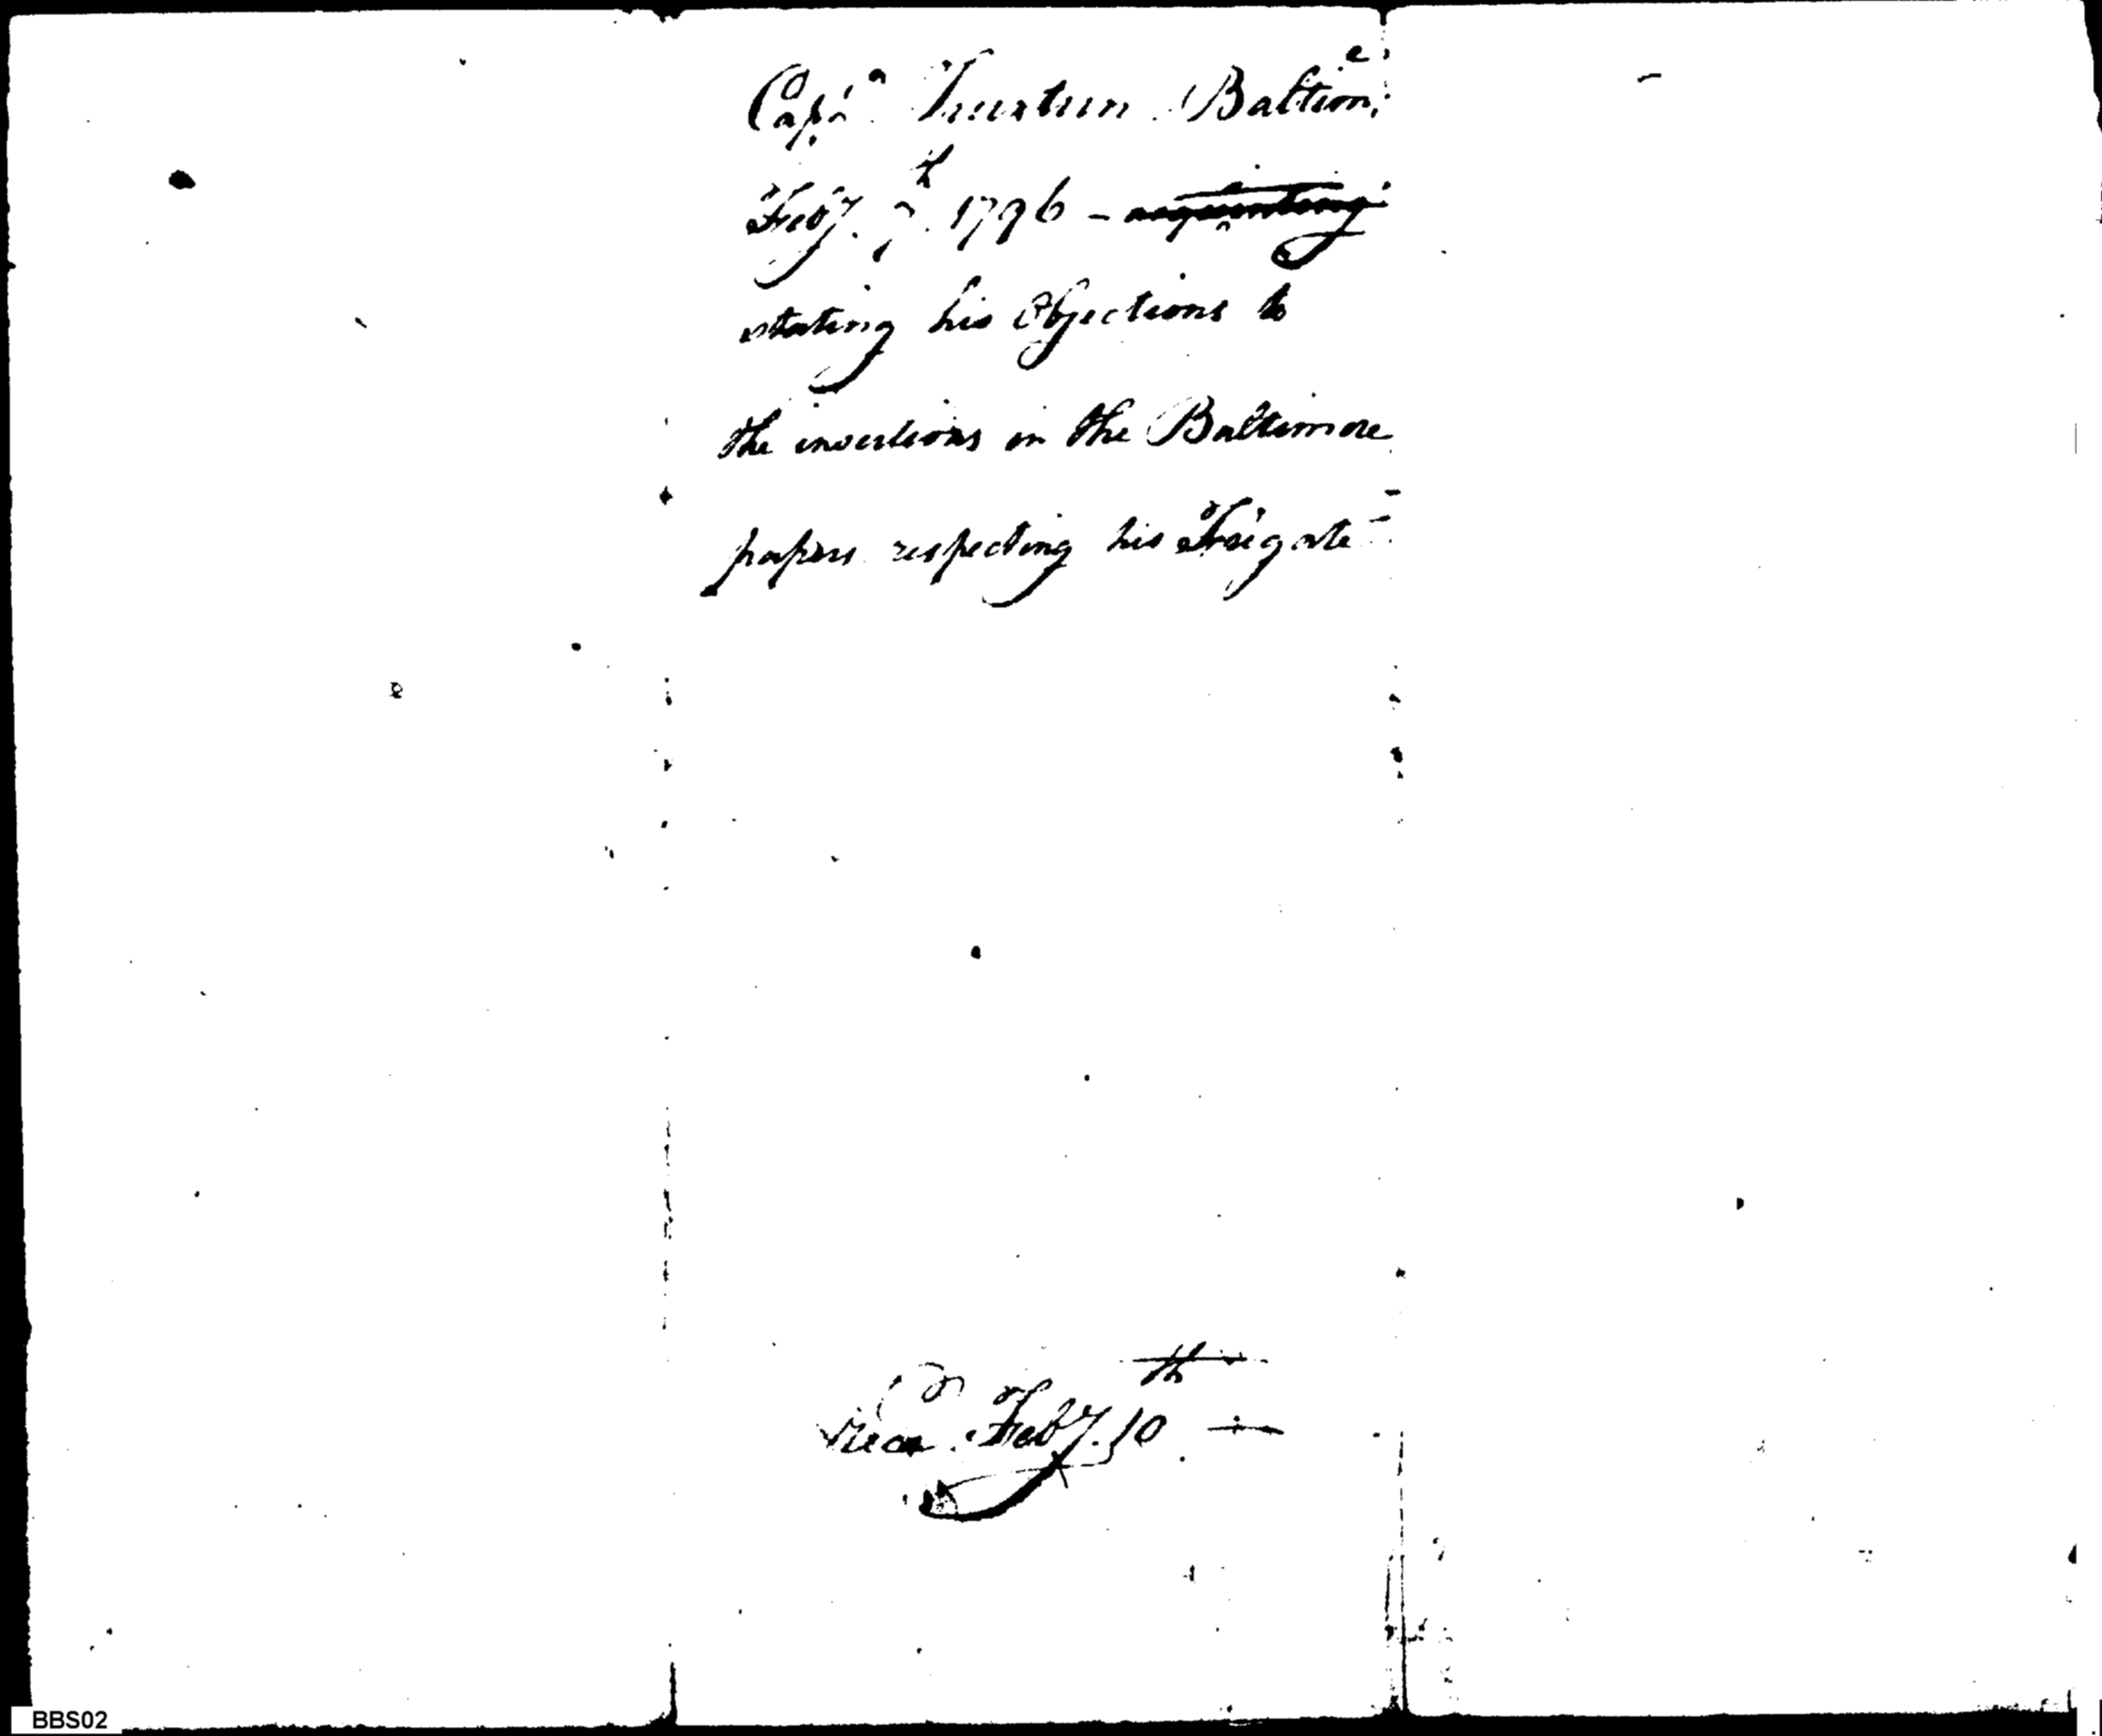 Capn Truxtun Baltime
Feby. 7th 1796 -
stating his Objections to
the insertions in the Baltimore
papers respecting his Frigate
Recd. Feby. 10th
BBS02